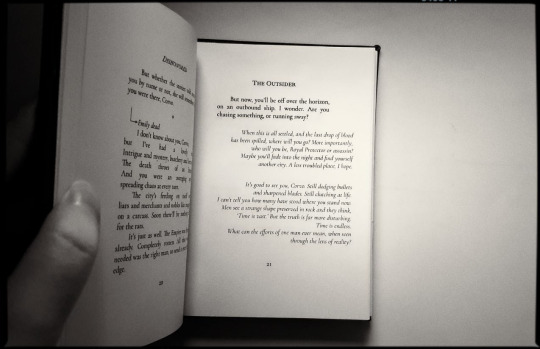 DISHONORED
But whether the
you by name or not, she will
you were there, Corvo.
Emily dead
I don't know about you, Corvo,
but I've had a lovely
Intrigue and mystery,
The death throes of an
And you were an
spreading chaos at every turn.
The city's feeding
liars and merchants and nobles
on a carcass. Soon there'll be
for the rats.
It's just as well. The Empire
already. Completely rotten. All
needed was the right man, to send
edge.
20
THE OUTSIDER
But now, you'll be off over the horizon,
on an outbound ship. I wonder. Are you
chasing something, or running away?
When this is all settled, and the last drop of blood
has been spilled, where will you go? More importantly,
who will you be, Royal Protector or assassin?
Maybe you'll fade into the night and find yourself
another city. A less troubled place, I hope.
It's good to see you, Corvo. Still dodging bullets
and sharpened blades. Still clutching at life.
I can't tell you how many have stood where you stand now.
Men see a strange shape preserved in rock and they think,
'Time is vast.' But the truth is far more disturbing.
Time is endless.
What can the efforts of one man ever mean, when seen
through the lens of reality?
21